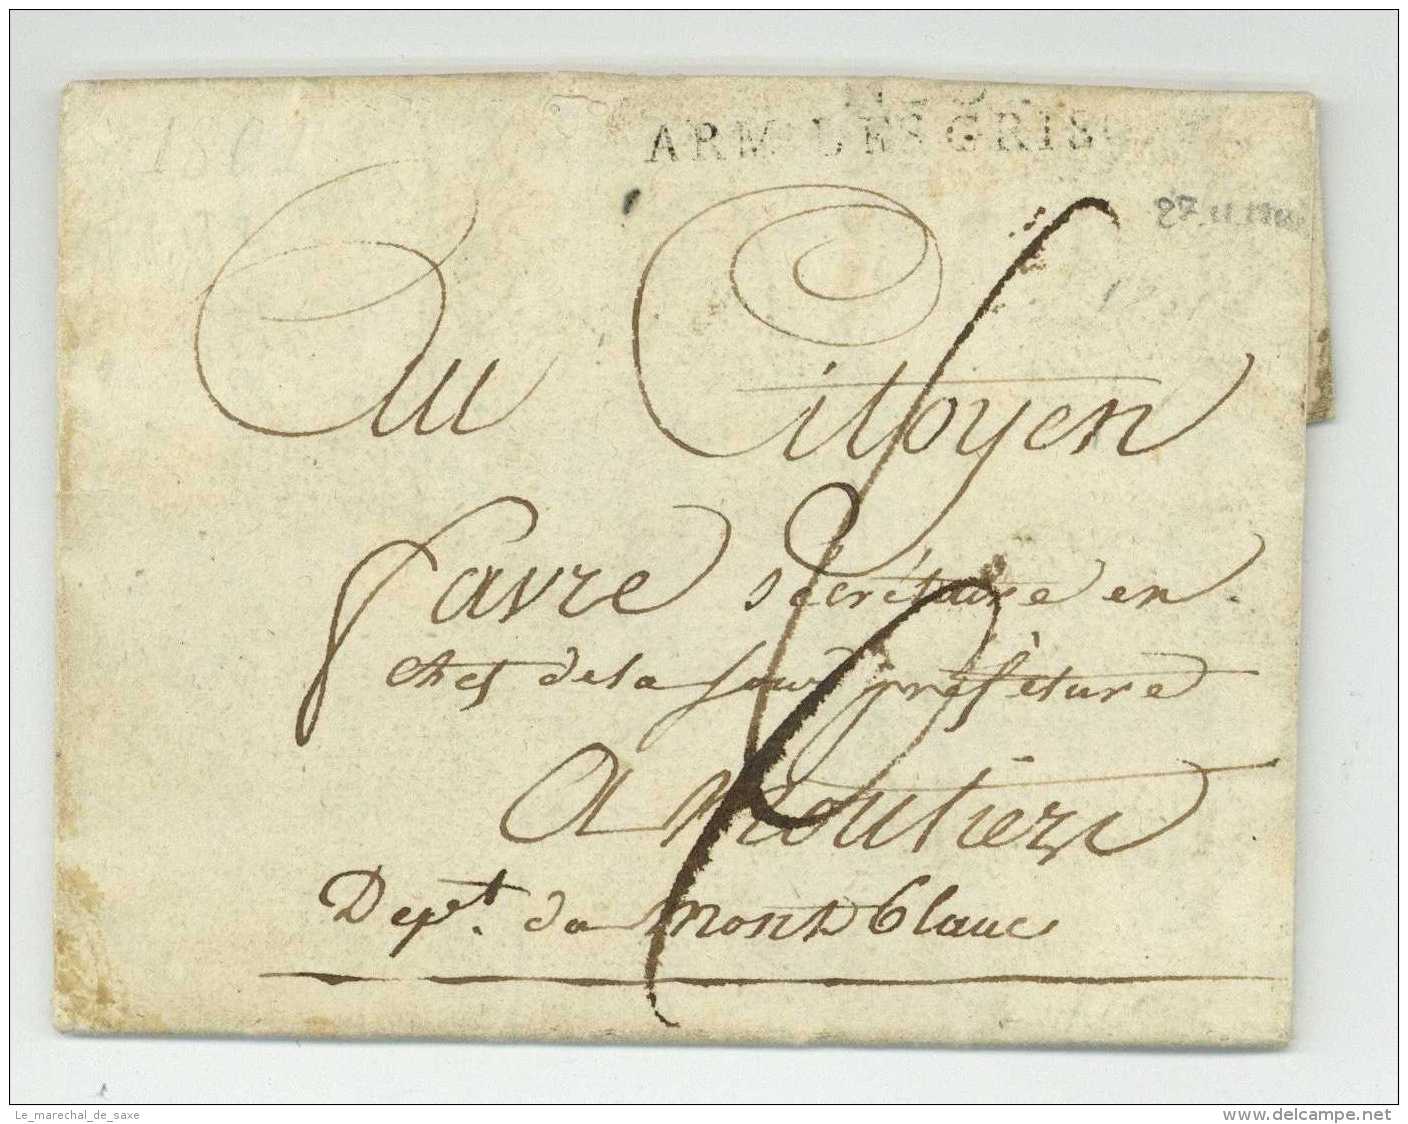 ARM DES GRIS
Au Citoyen
favre Secrétaire en
chef de la sous préfeture
A Moutiers
Dept. du mont blanc
Le_marechal_de_saxe
www.delcampe.net